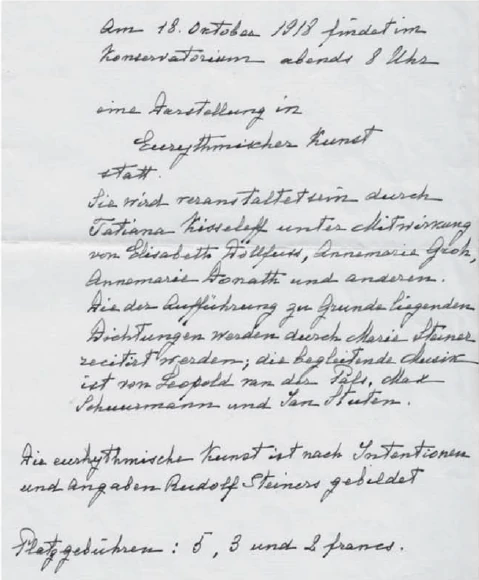 Am 18. Oktober 1918 findet im
Konservatorium abends 8 Uhr
eine Darstellung in
Eurythmischer Kunst
statt.
Sie wird veranstaltet sein durch
Tatiana Kisseleff unter Mitwirkung
von Elisabeth Dollfuss, Annemarie Groh,
Annemarie Donath und anderen.
Die der Aufführung zu Grunde liegenden
Dichtungen werden durch Marie Steiner
recitirt werden; die begleitende Musik
ist von Leopold van der Pals, Max
Schuurmann und Jan Stuten.
Die eurhythmische Kunst ist nach Intentionen
und Angaben Rudolf Steiners gebildet
Platzgebühren : 5, 3 und 2 francs.